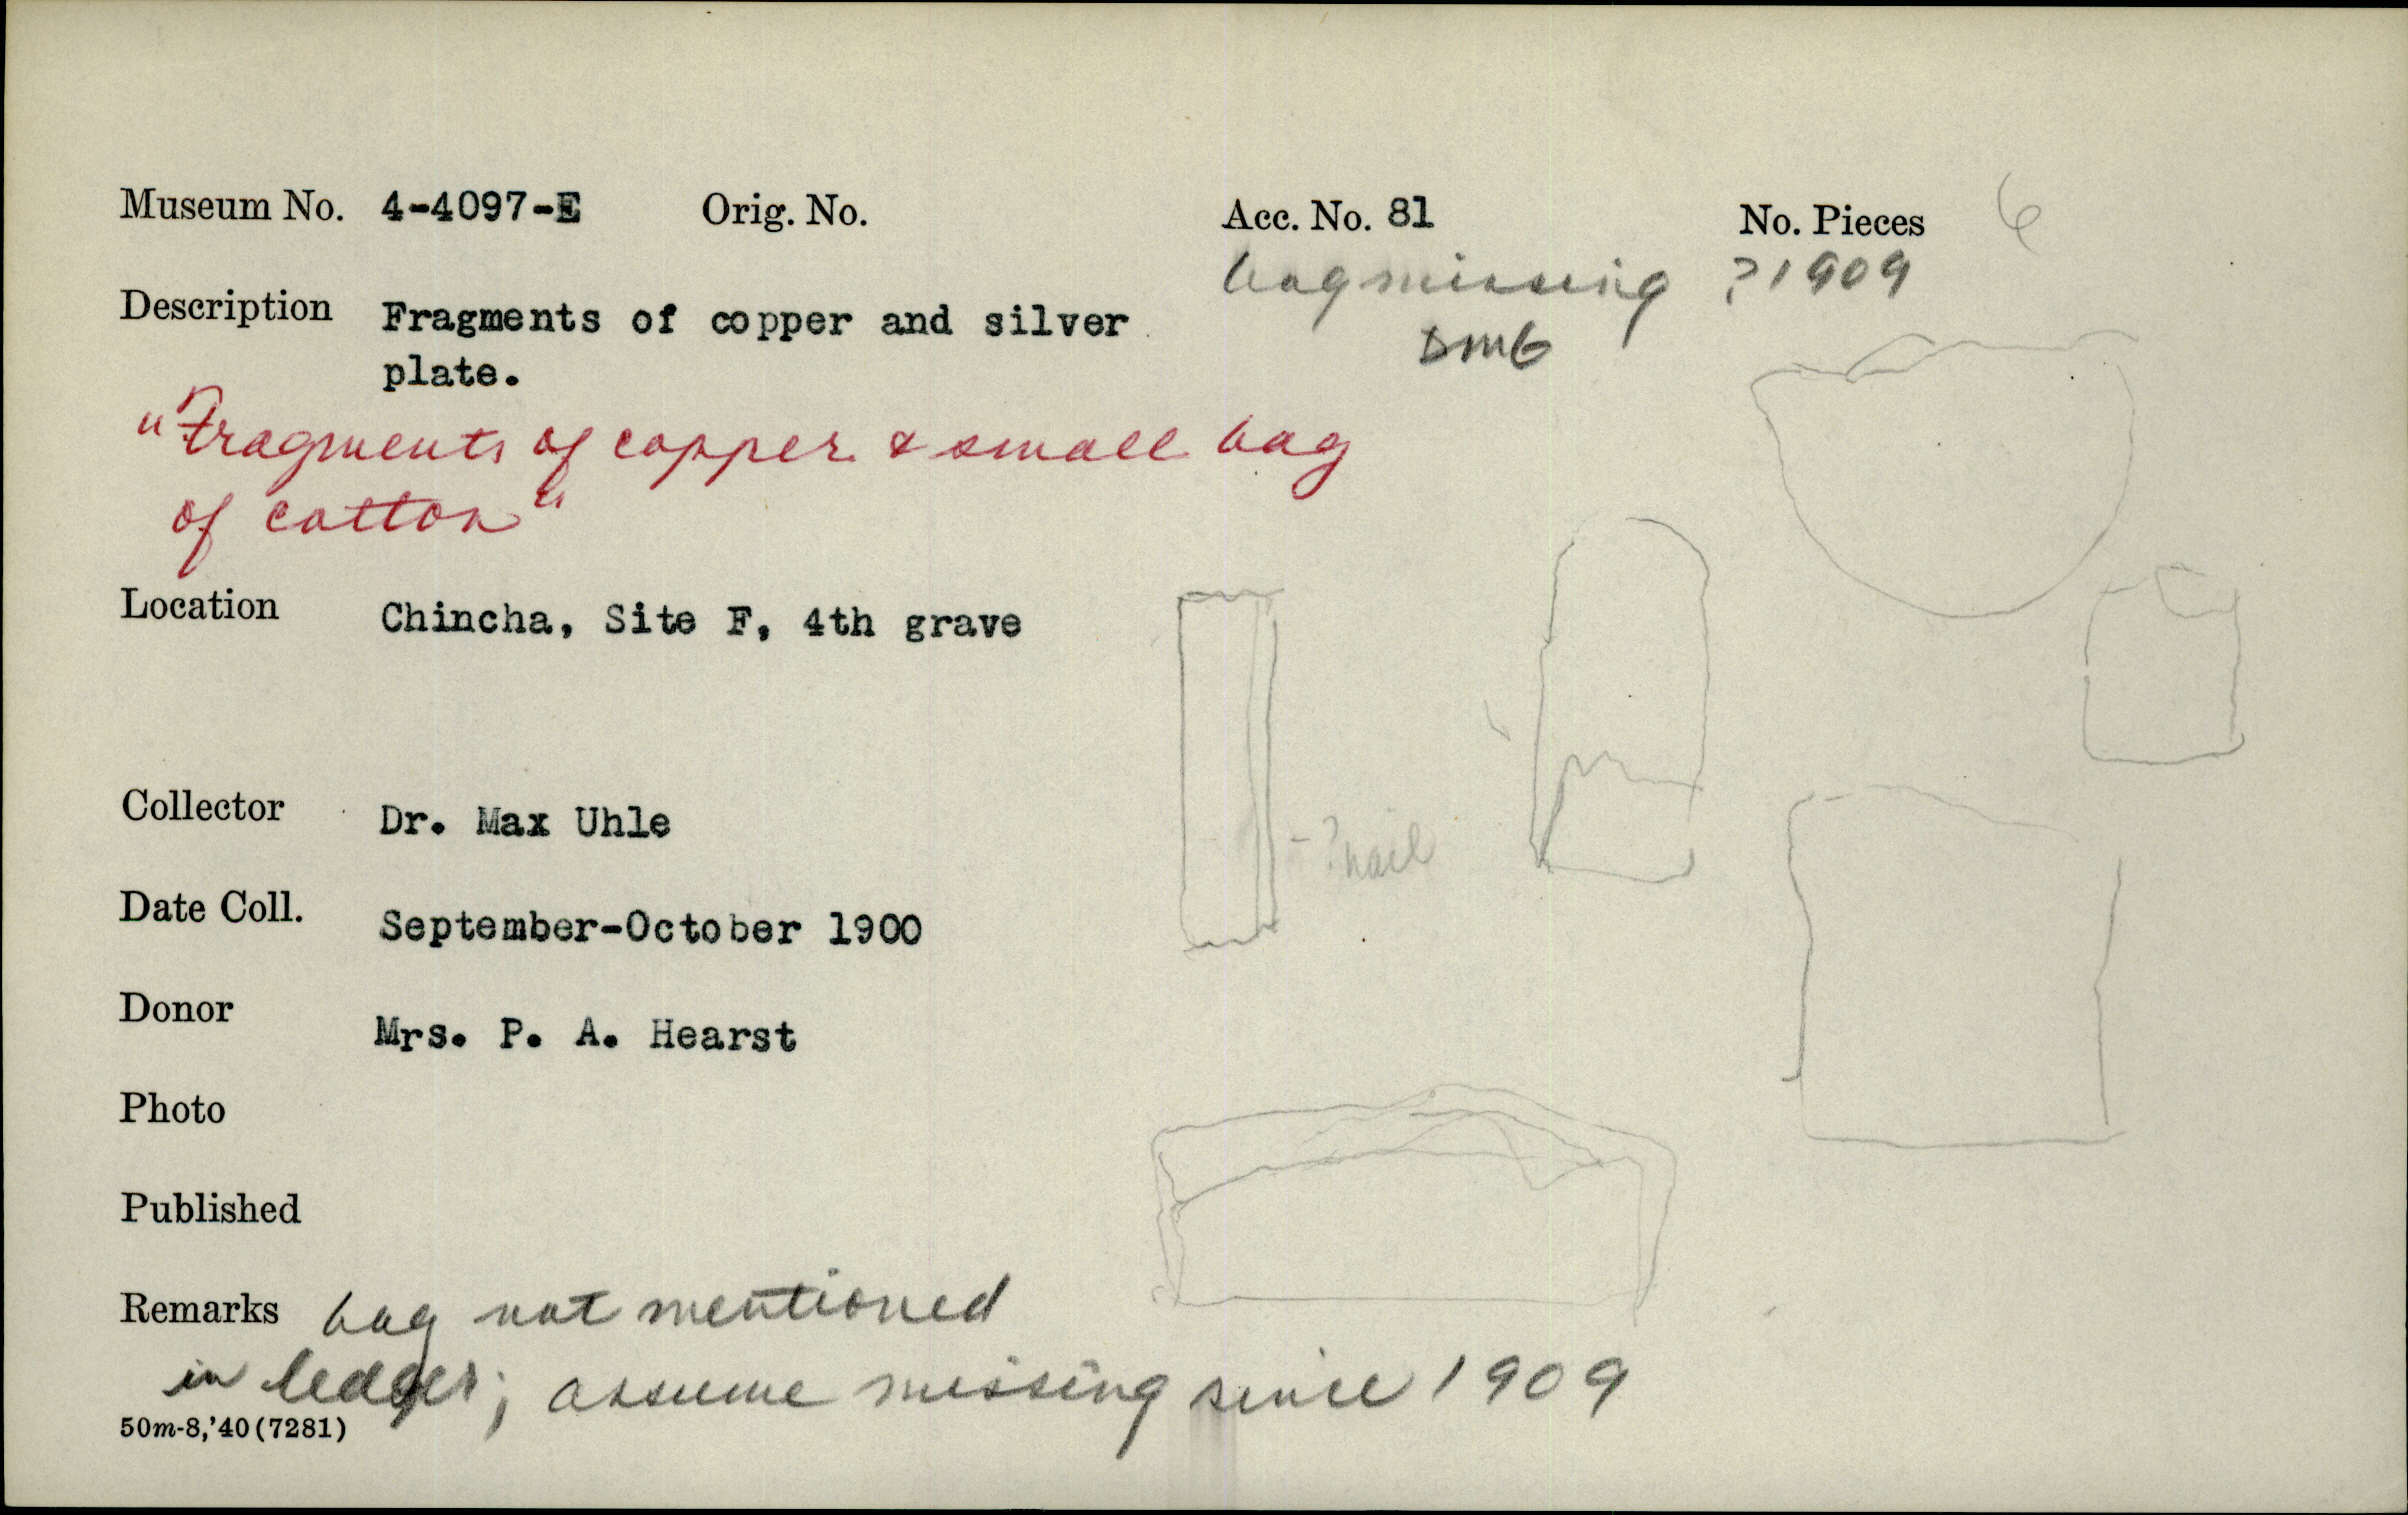 Museum No. 4-4097-E Orig. No. Acc. No. 81 No. Pieces 6
bag missing ? 1909
DMG
Description Fragments of copper and silver
plate.
"Fragments of copper & small bag
of cotton"
Location Chincha, Site F, 4th grave
Collector Dr. Max Uhle
- ?nail
Date Coll. September-October 1900
Donor Mrs. P. A. Hearst
Photo
Published
Remarks bag not mentioned
in ledger; assume missing since 1909
50m-8,'40(7281)